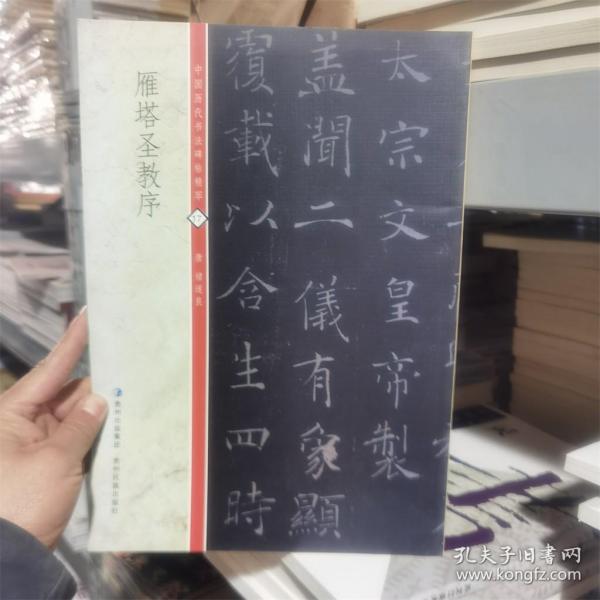 雁塔圣教序
中国历代书法碑帖精萃
17
唐 褚遂良
贵州出版集团 贵州民族出版社
太宗文皇帝製
盖聞二儀有象顯
覆載以含生四時
孔夫子旧书网
www.kongfz.com